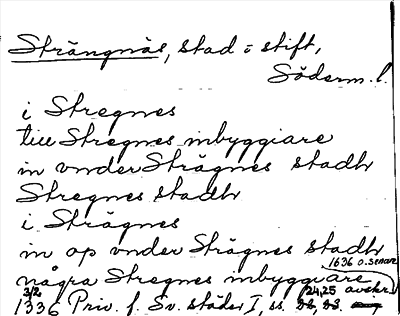 Strängnäs, stad i stift,
Söderm. l.
i Stregnes
till Stregnes inbyggiare
in vnder Strägnes stadh
Stregnes stadh
i Strägnes
in op vnder Strägnes stadh
1636 o. senare
några Stregnes inbyggiare
3/2 24,25 avskr.
1336 Priv. f. Sv. städer I, ss.